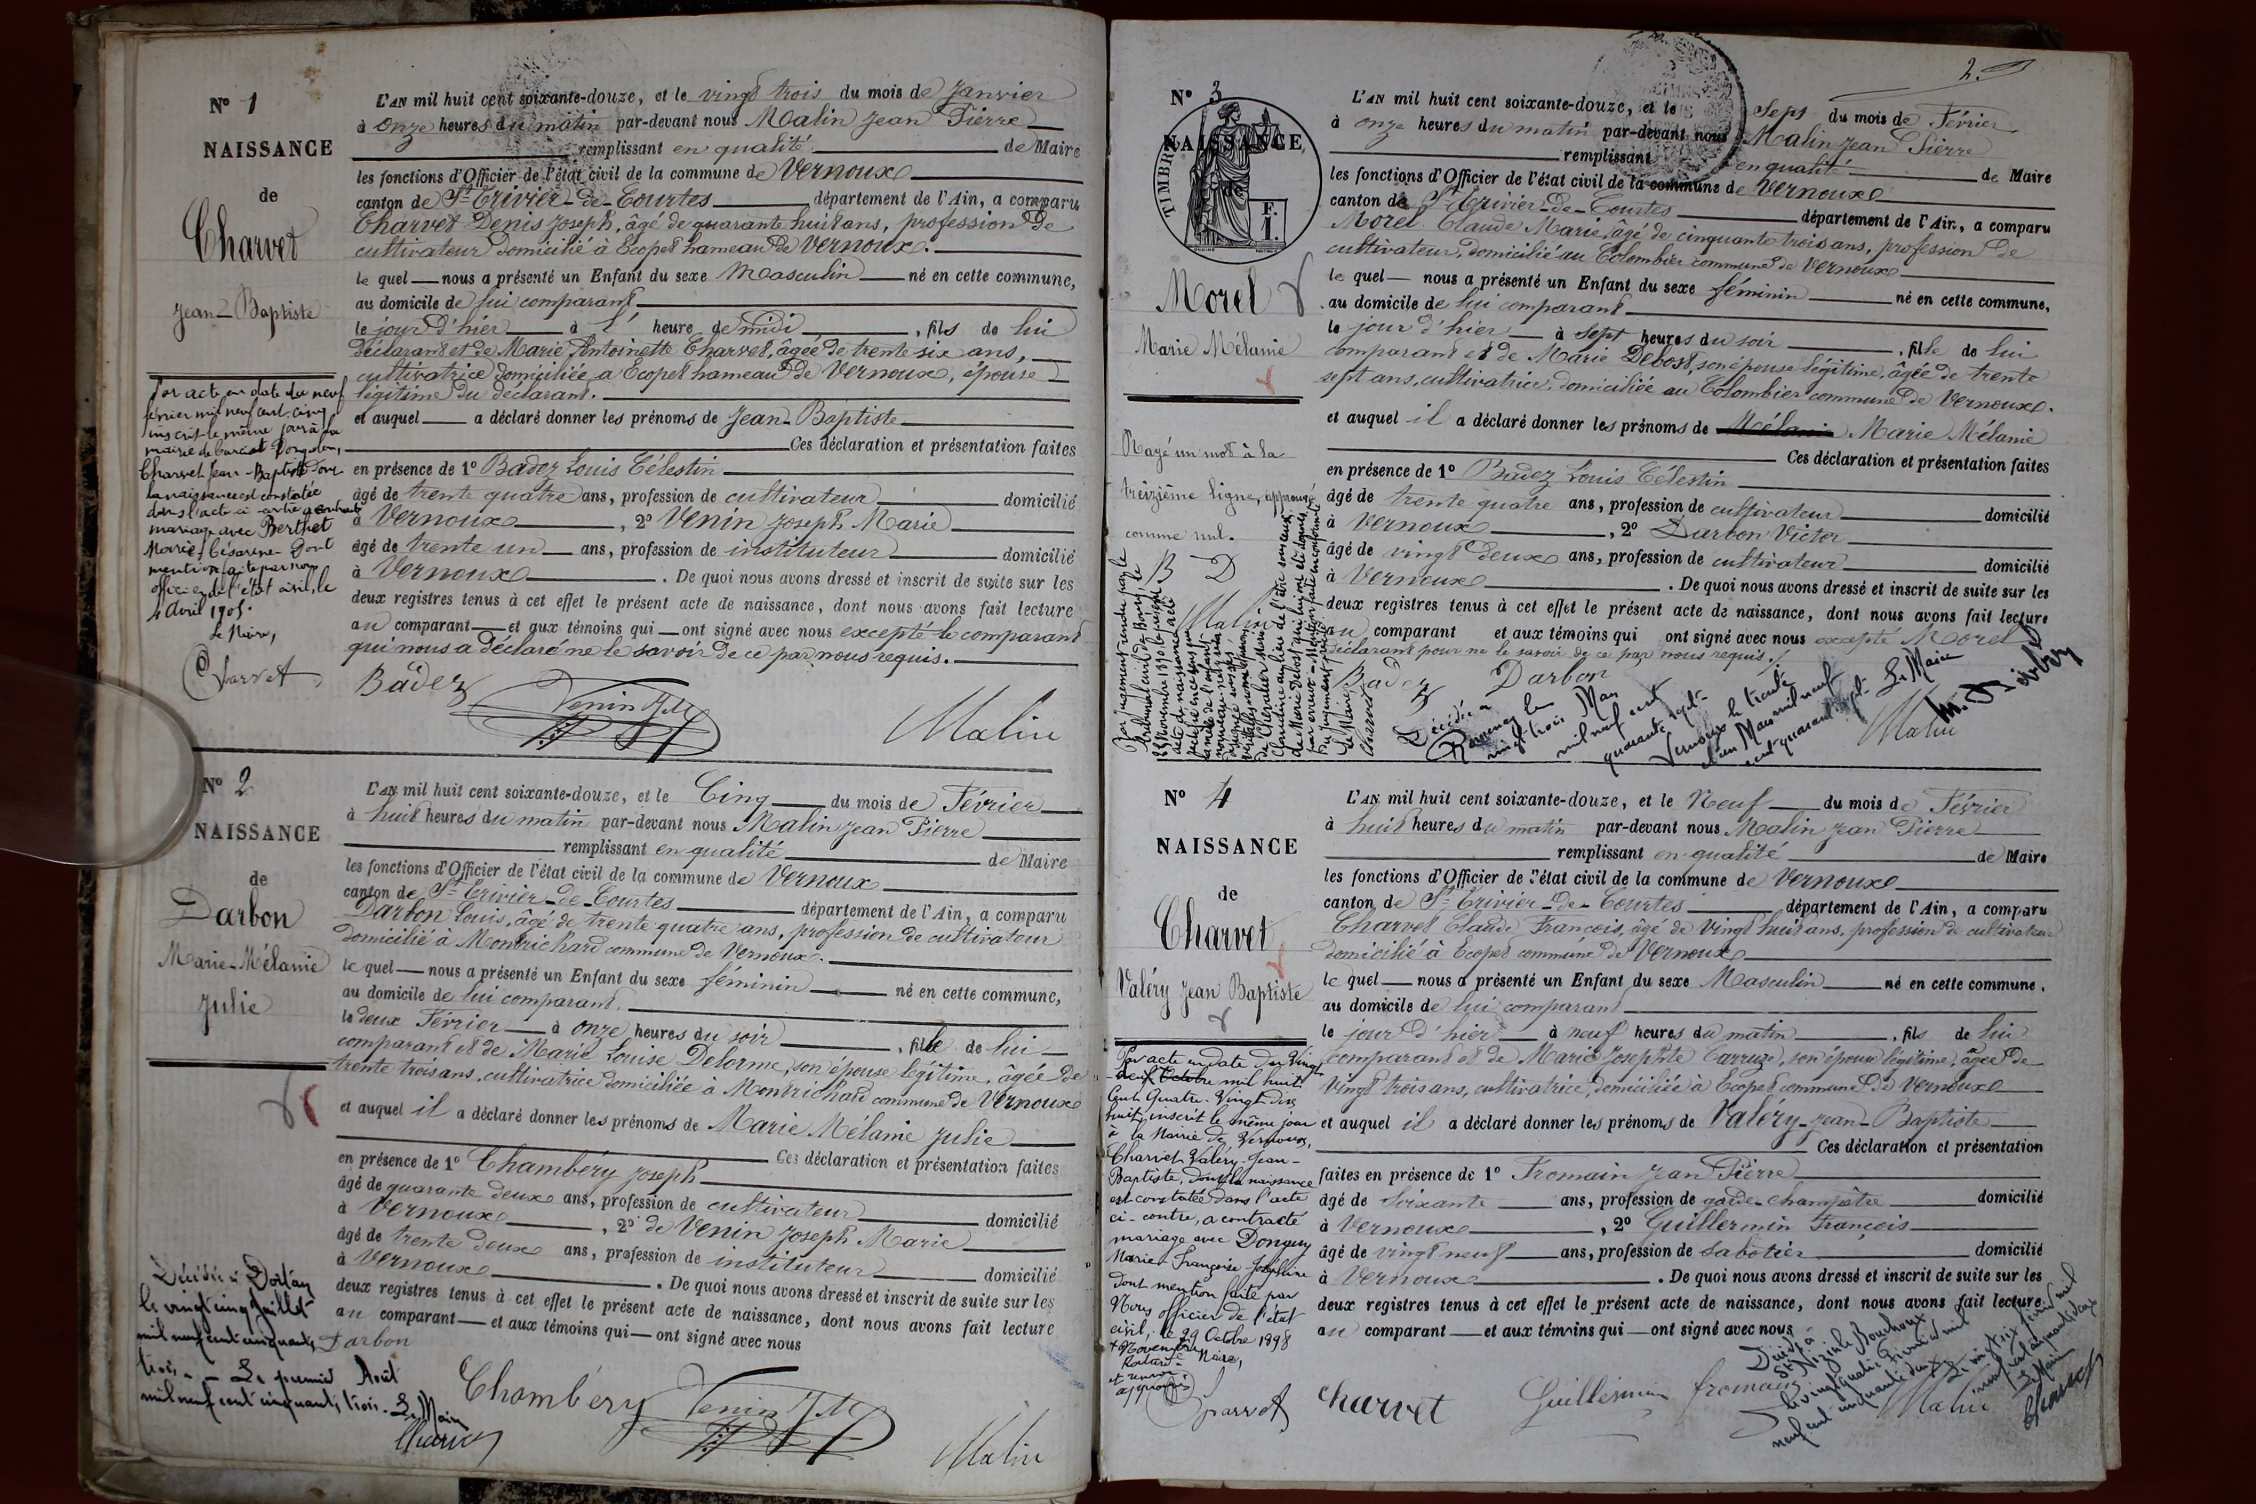 N° 1
NAISSANCE
de
Charvet
Jean-Baptiste
Par acte en date du neuf
février mil neuf cent cinq
inscrit le même jour à la
mairie de
Charvet Jean-Baptiste dont
la naissance est constatée
dans l'acte ci-contre a contracté
mariage avec Berthet
Marie Césarine dont
mention faite par nous
officier de l'état civil, le
4 Avril 1905.
Le Maire,
Charvet
L'AN mil huit cent soixante-douze, et le vingt trois du mois de Janvier
à onze heures du matin par-devant nous Malin Jean Pierre
remplissant en qualité de Maire
les fonctions d'Officier de l'état civil de la commune de Vernoux
canton de St Trivier-de-Courtes département de l'Ain, a comparu
Charvet Denis Joseph, âgé de quarante huit ans, profession de
cultivateur domicilié à Ecopet hameau de Vernoux.
le quel nous a présenté un Enfant du sexe Masculin né en cette commune,
au domicile de lui comparant
le jour d'hier à l' heure de midi, fils de lui
déclarant et de Marie Antoinette Charvet, âgée de trente six ans,
cultivatrice domiciliée a Ecopet hameau de Vernoux, épouse
légitime du déclarant.
et auquel a déclaré donner les prénoms de Jean-Baptiste
Ces déclaration et présentation faites
en présence de 1° Badez Louis Célestin
âgé de trente quatre ans, profession de cultivateur domicilié
à Vernoux, 2° Venin Joseph Marie
âgé de trente un ans, profession de instituteur domicilié
à Vernoux. De quoi nous avons dressé et inscrit de suite sur les
deux registres tenus à cet effet le présent acte de naissance, dont nous avons fait lecture
au comparant et aux témoins qui ont signé avec nous excepté le comparant
qui nous a déclaré ne le savoir de ce par nous requis.
Badez Venin J M Malin
N° 2
NAISSANCE
de
Darbon
Marie-Mélanie
Julie
Décédée à Dortan
le vingt cinq juillet
mil neuf cent cinquante
trois. Le premier Août
mil neuf cent cinquante trois. Le Maire
L'AN mil huit cent soixante-douze, et le Cinq du mois de Février
à huit heures du matin par-devant nous Malin Jean Pierre
remplissant en qualité de Maire
les fonctions d'Officier de l'état civil de la commune de Vernoux
canton de St Trivier-de-Courtes département de l'Ain, a comparu
Darbon Louis, âgé de trente quatre ans, profession de cultivateur
domicilié à Montrichard commune de Vernoux.
le quel nous a présenté un Enfant du sexe féminin né en cette commune,
au domicile de lui comparant.
le deux Février à onze heures du soir, fille de lui
comparant et de Marie Louise Delorme, son épouse légitime, âgée de
trente trois ans, cultivatrice domiciliée à Montrichard commune de Vernoux
et auquel il a déclaré donner les prénoms de Marie Mélanie Julie
Ces déclaration et présentation faites
en présence de 1° Chambéry Joseph
âgé de quarante deux ans, profession de cultivateur
à Vernoux, 2° de Venin Joseph Marie domicilié
âgé de trente deux ans, profession de instituteur
à Vernoux. De quoi nous avons dressé et inscrit de suite sur les domicilié
deux registres tenus à cet effet le présent acte de naissance, dont nous avons fait lecture
au comparant et aux témoins qui ont signé avec nous
Darbon
Chambéry Venin J M Malin
2.
N° 3
NAISSANCE
de
TIMBRE
F.
1.
Morel
Marie Mélanie
Rayé un mot à la
treizième ligne, approuvé
comme nul.
B D
Malin
Par jugement rendu par le
tribunal civil de Bourg le
L'AN mil huit cent soixante-douze, et le Sept du mois de Février
à onze heures du matin par-devant nous Malin Jean Pierre
remplissant en qualité de Maire
les fonctions d'Officier de l'état civil de la commune de Vernoux
canton de St Trivier-de-Courtes département de l'Ain, a comparu
Morel Claude Marie, âgé de cinquante trois ans, profession de
cultivateur, domicilié au Colombier commune de Vernoux
le quel nous a présenté un Enfant du sexe féminin né en cette commune,
au domicile de lui comparant
le jour d'hier à sept heures du soir, fille de lui
comparant et de Marie Debost, son épouse légitime, âgée de trente
sept ans, cultivatrice, domiciliée au Colombier commune de Vernoux.
et auquel il a déclaré donner les prénoms de Mélanie Marie Mélanie
Ces déclaration et présentation faites
en présence de 1° Badez Louis Célestin
âgé de trente quatre ans, profession de cultivateur domicilié
à Vernoux, 2° Darbon Victor
âgé de vingt deux ans, profession de cultivateur domicilié
à Vernoux. De quoi nous avons dressé et inscrit de suite sur les
deux registres tenus à cet effet le présent acte de naissance, dont nous avons fait lecture
au comparant et aux témoins qui ont signé avec nous excepté Morel
déclarant pour ne le savoir de ce par nous requis.
Badez Darbon Malin
Décédée à
Romenay le
vingt trois Mai
mil neuf cent
quarante sept
Vernoux le trente
et un Mai mil neuf
cent quarante sept Le Maire
N° 4
NAISSANCE
de
Charvet
Valéry Jean Baptiste
Par acte en date du Vingt
neuf Octobre mil huit
Cent Quatre-Vingt-dix
huit, inscrit le même jour
à la Mairie de Vernoux,
Charvet Valéry-Jean-
Baptiste, dont la naissance
est constatée dans l'acte
ci-contre, a contracté
mariage avec Donguy
Marie-Françoise Joséphine
dont mention faite par
Nous officier de l'état
civil, le 29 Octobre 1898
Maire,
Charvet
L'AN mil huit cent soixante-douze, et le Neuf du mois de Février
à huit heures du matin par-devant nous Malin Jean Pierre
remplissant en qualité de Maire
les fonctions d'Officier de l'état civil de la commune de Vernoux
canton de St Trivier-de-Courtes département de l'Ain, a comparu
Charvet Claude François, âgé de vingt huit ans, profession de cultivateur
domicilié à Ecopet commune de Vernoux
le quel nous a présenté un Enfant du sexe Masculin né en cette commune,
au domicile de lui comparant
le jour d'hier à neuf heures du matin, fils de lui
comparant et de Marie Josephte Carruge, son épouse légitime, âgée de
vingt trois ans, cultivatrice, domiciliée à Ecopet commune de Vernoux
et auquel il a déclaré donner les prénoms de Valéry-Jean-Baptiste
Ces déclaration et présentation
faites en présence de 1° Fromain Jean Pierre
âgé de soixante ans, profession de garde-champêtre domicilié
à Vernoux, 2° Guillermin François
âgé de vingt neuf ans, profession de sabotier domicilié
à Vernoux. De quoi nous avons dressé et inscrit de suite sur les
deux registres tenus à cet effet le présent acte de naissance, dont nous avons fait lecture
au comparant et aux témoins qui ont signé avec nous
Charvet Guillermin fromain Malin
Décédé à
St Nizier le Bouchoux
le vingt quatre Février mil
neuf cent cinquante deux
Le Maire